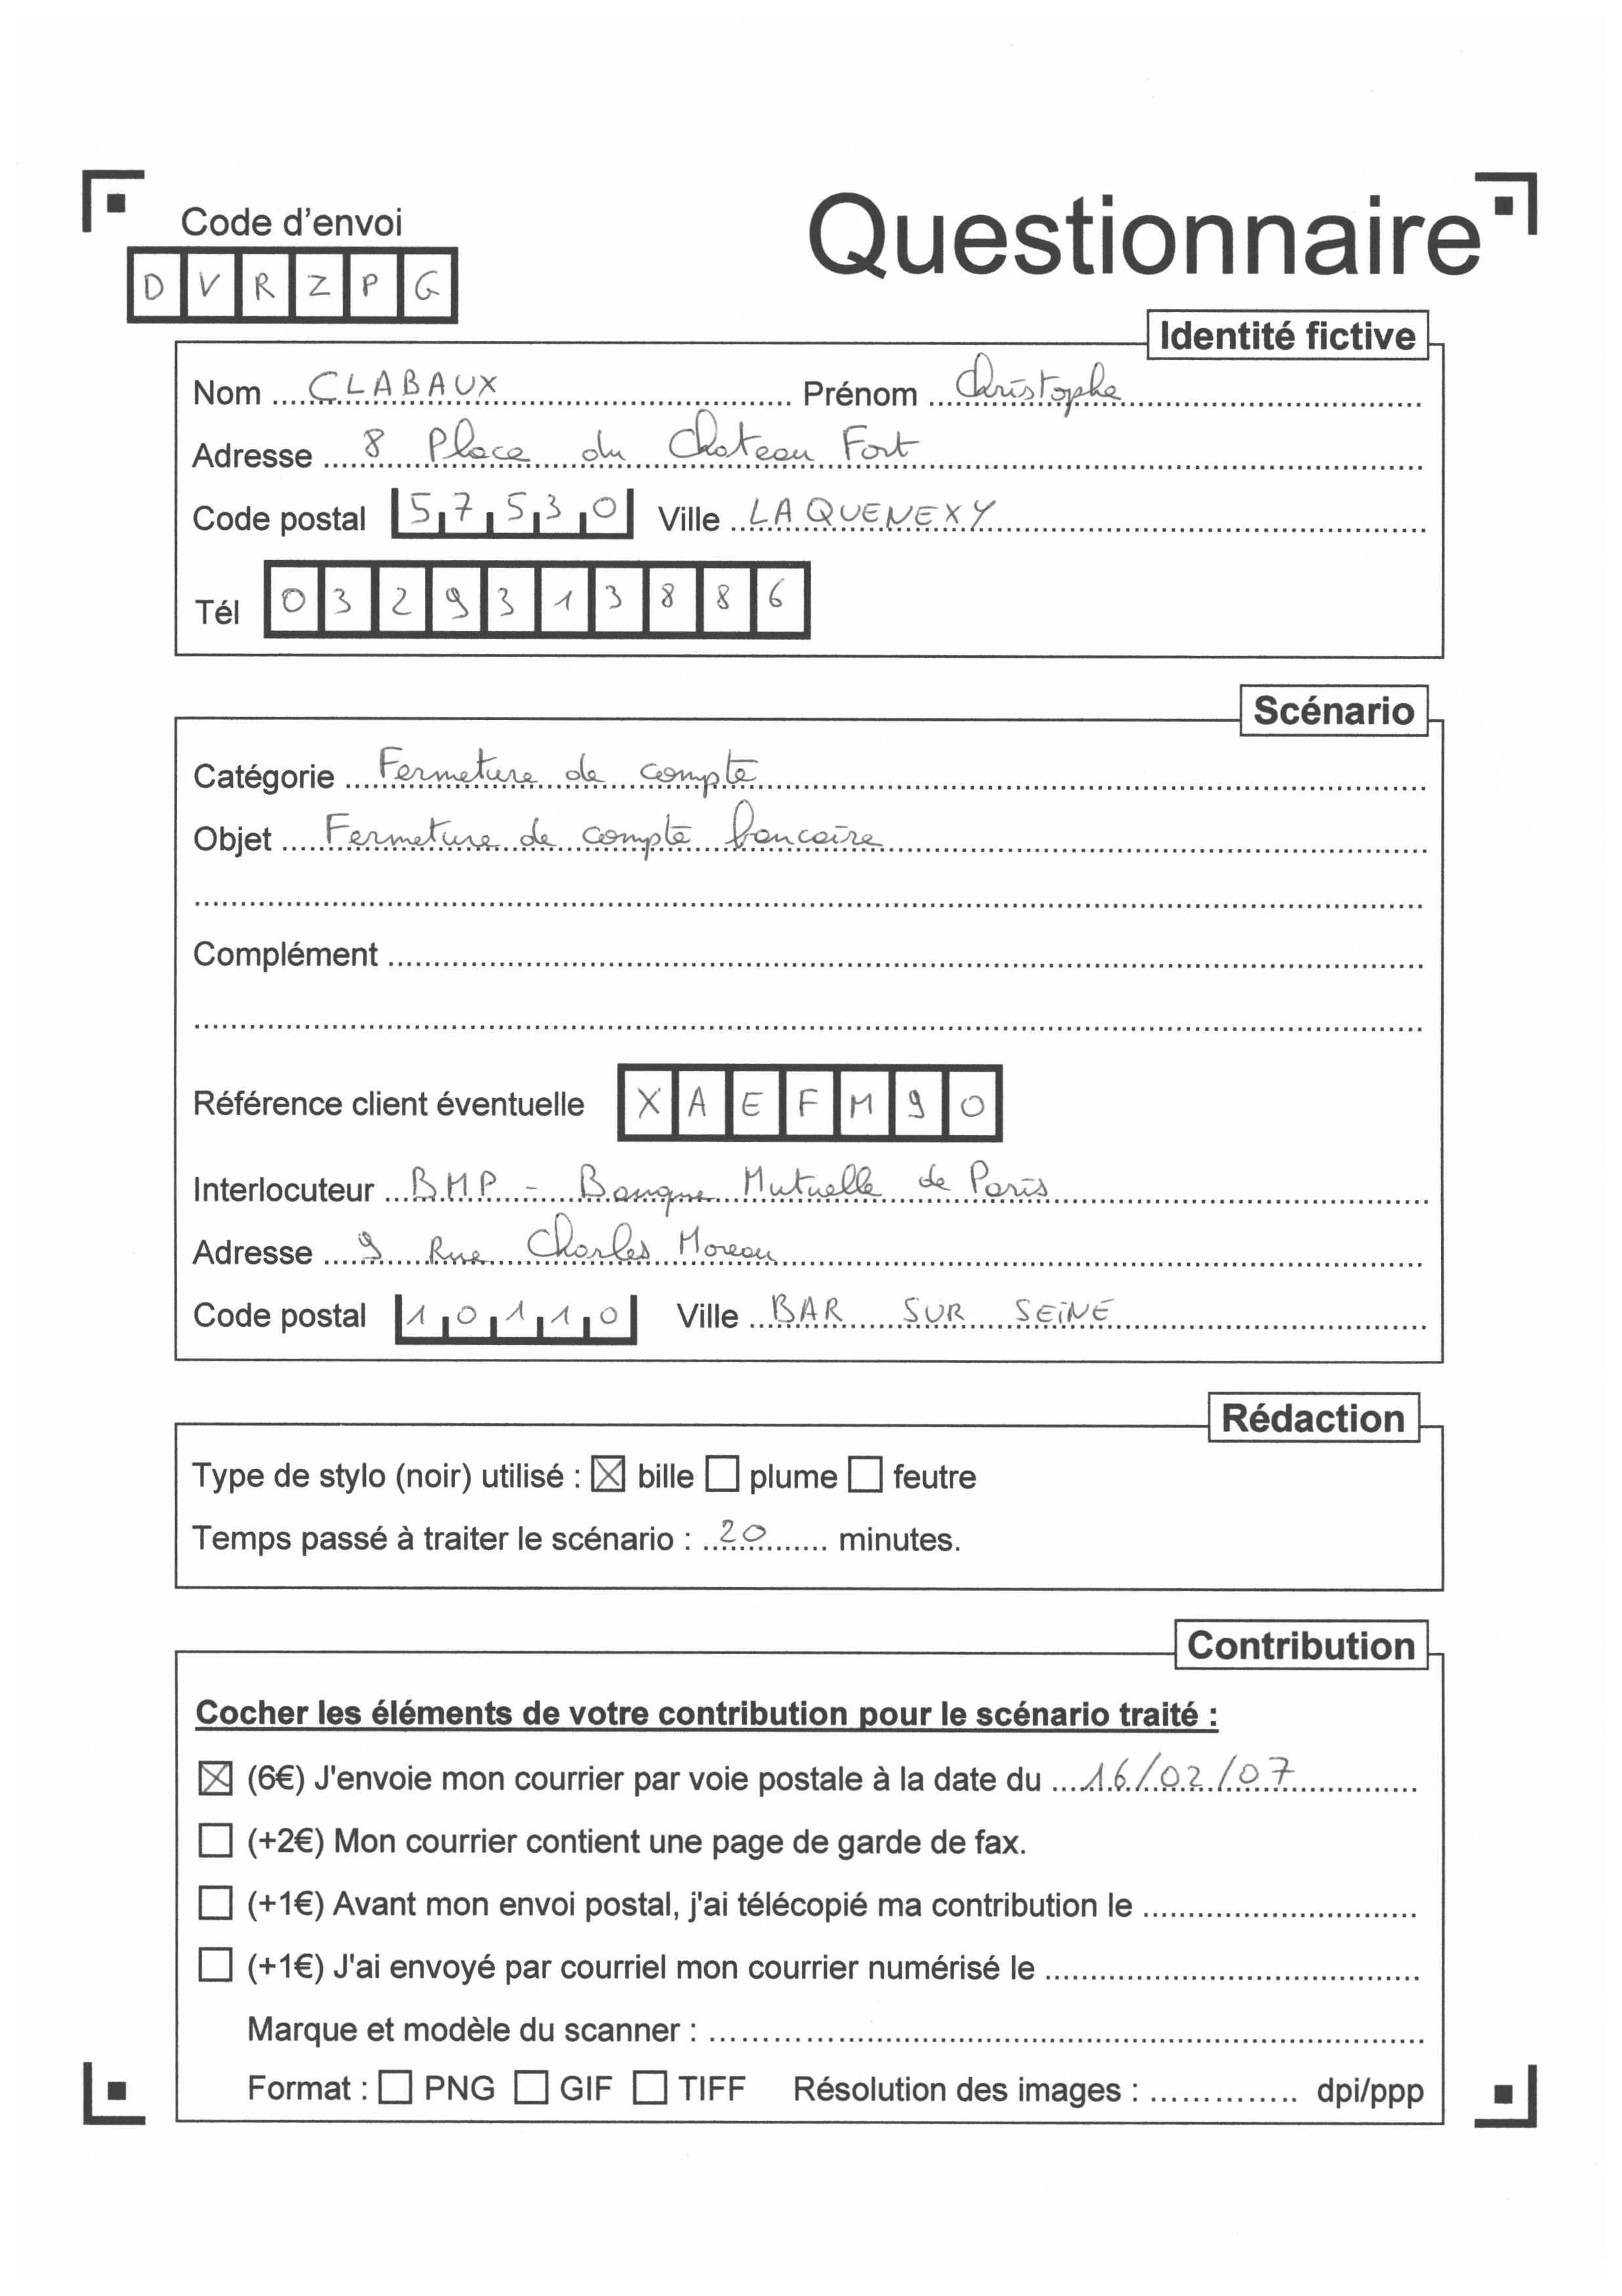 Code d'envoi
Questionnaire
D V R Z P G
Identité fictive
Nom CLABAUX Prénom Christophe
Adresse 8 Place du Chateau Fort
Code postal 57530 Ville LAQUENEXY
Tél 0329313886
Scénario
Catégorie Fermeture de compte
Objet Fermeture de compte bancaire
Complément
Référence client éventuelle XAEFM90
Interlocuteur BMP - Banque Mutuelle de Paris
Adresse 9 Rue Charles Moreau
Code postal 10110 Ville BAR SUR SEINE
Rédaction
Type de stylo (noir) utilisé : ☒ bille ☐ plume ☐ feutre
Temps passé à traiter le scénario : 20 minutes.
Contribution
Cocher les éléments de votre contribution pour le scénario traité :
☒ (6€) J'envoie mon courrier par voie postale à la date du 16/02/07
☐ (+2€) Mon courrier contient une page de garde de fax.
☐ (+1€) Avant mon envoi postal, j'ai télécopié ma contribution le
☐ (+1€) J'ai envoyé par courriel mon courrier numérisé le
Marque et modèle du scanner :
Format : ☐ PNG ☐ GIF ☐ TIFF Résolution des images : dpi/ppp